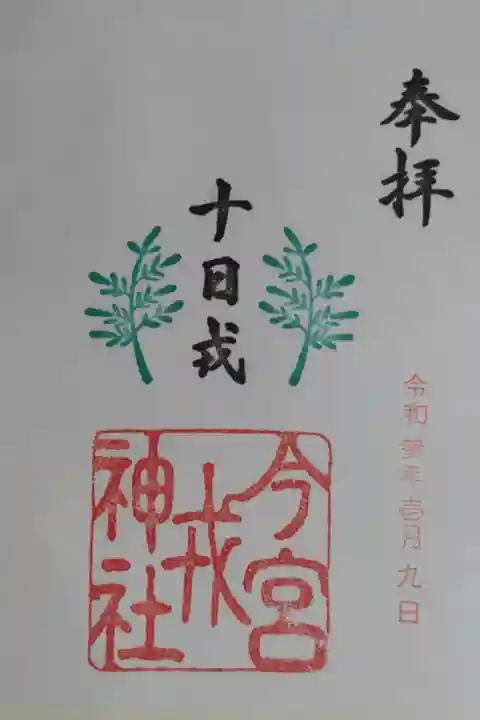 奉拝
十日戎
今宮
戎
神社
令和参年壱月九日